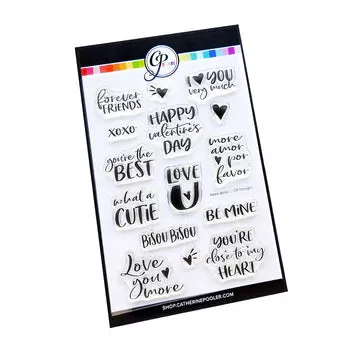 CP
forever
FRIENDS
I YOU
very much
XOXO
HAPPY
valentine's
DAY
you're the
BEST
LOVE
U
more
amor
por
favor
what a
CUTIE
BE MINE
BISOU BISOU
Love
you
more
YOU'RE
close to my
HEART
SHOP.CATHERINEPOOLER.COM